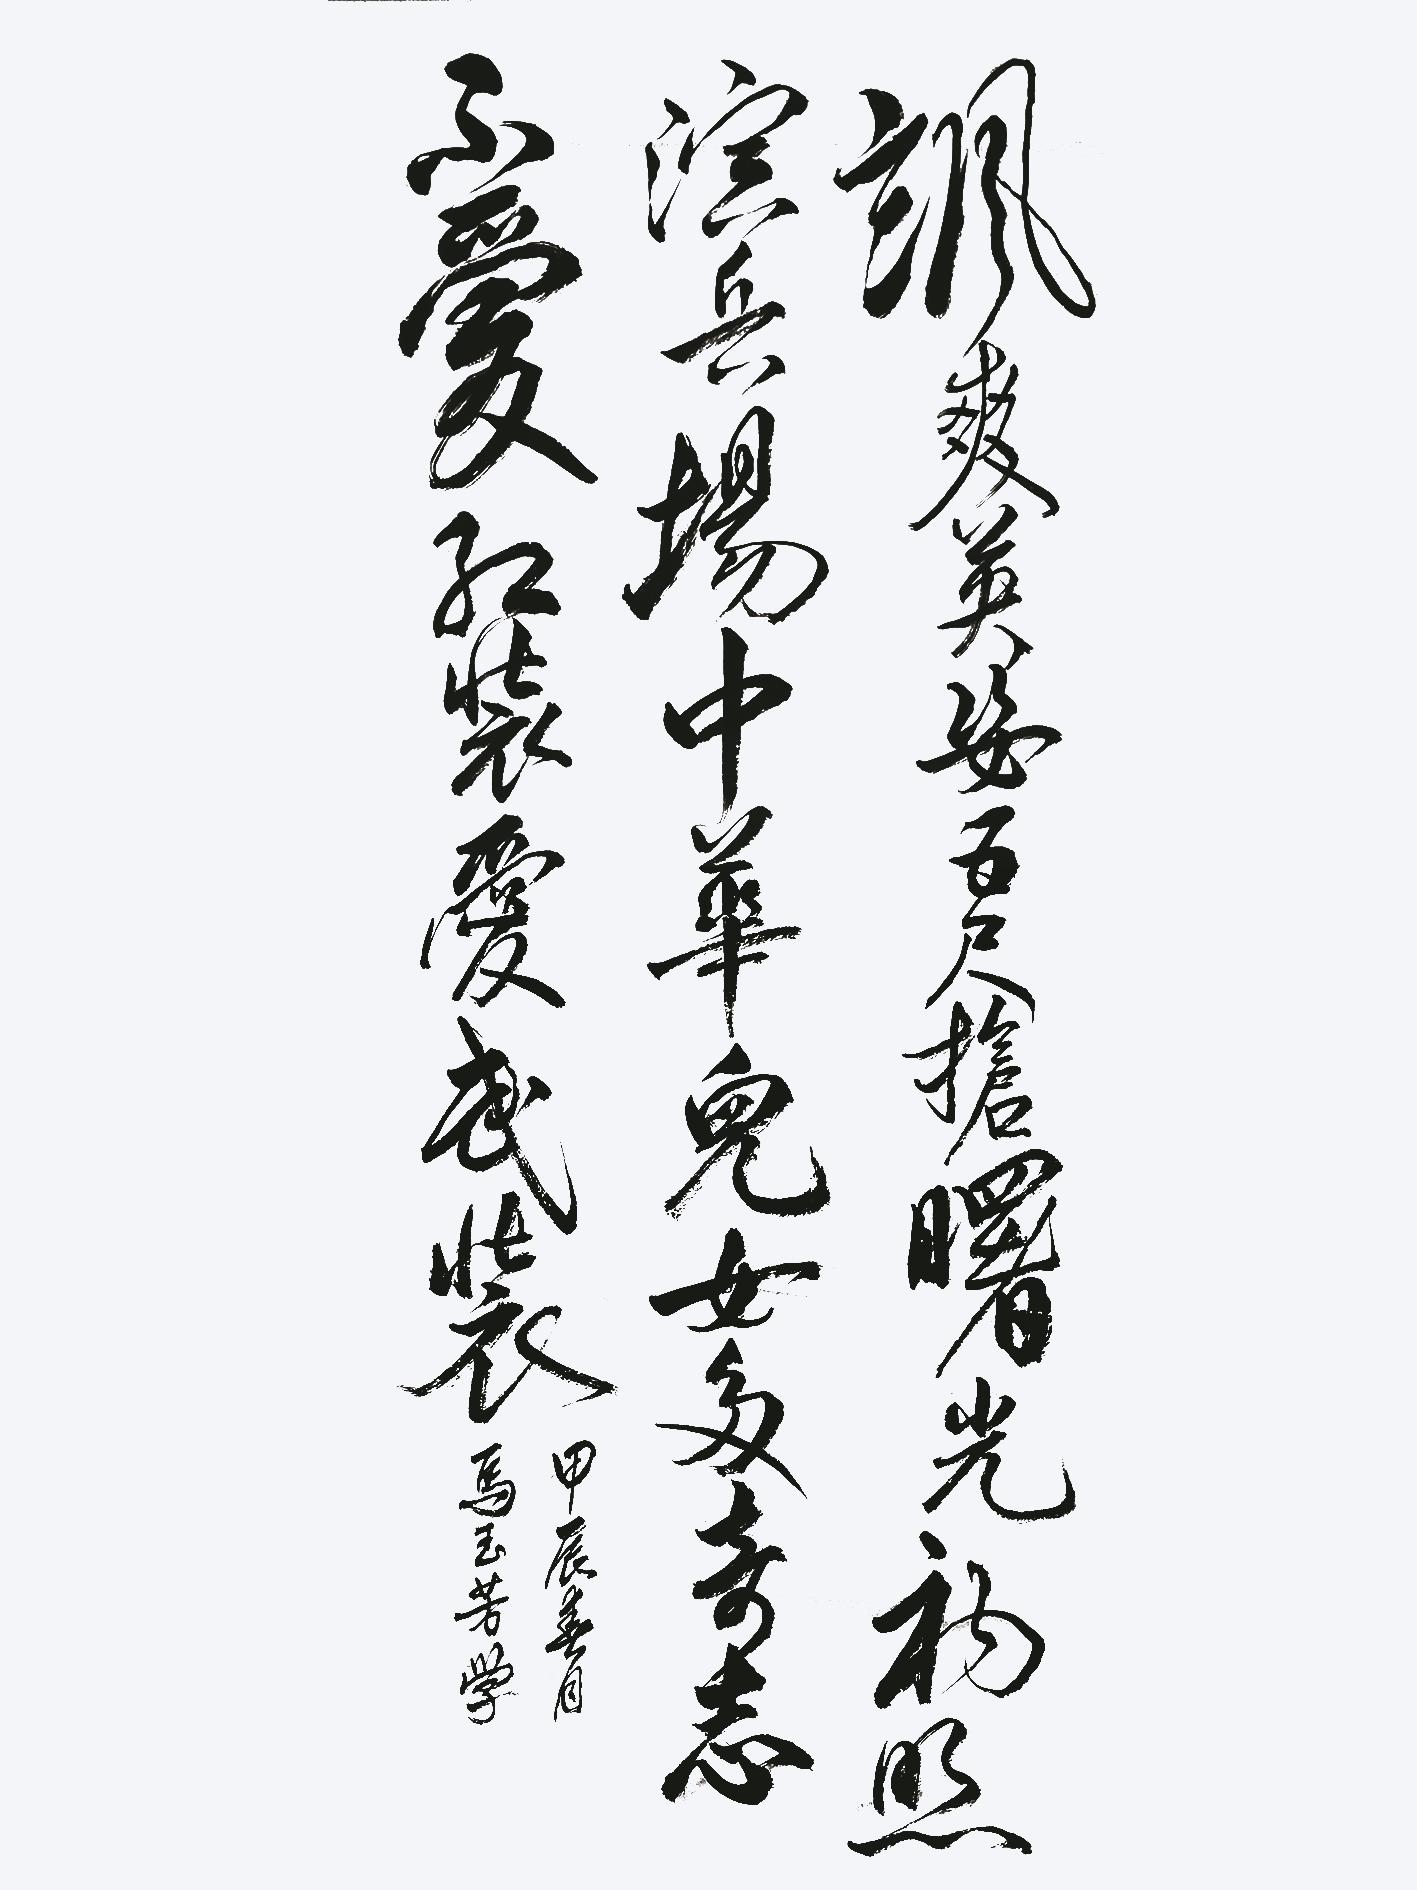 颯爽英姿五尺槍曙光初照
演兵場中華兒女多奇志
不愛紅裝愛武裝
甲辰春月
馬玉芳学